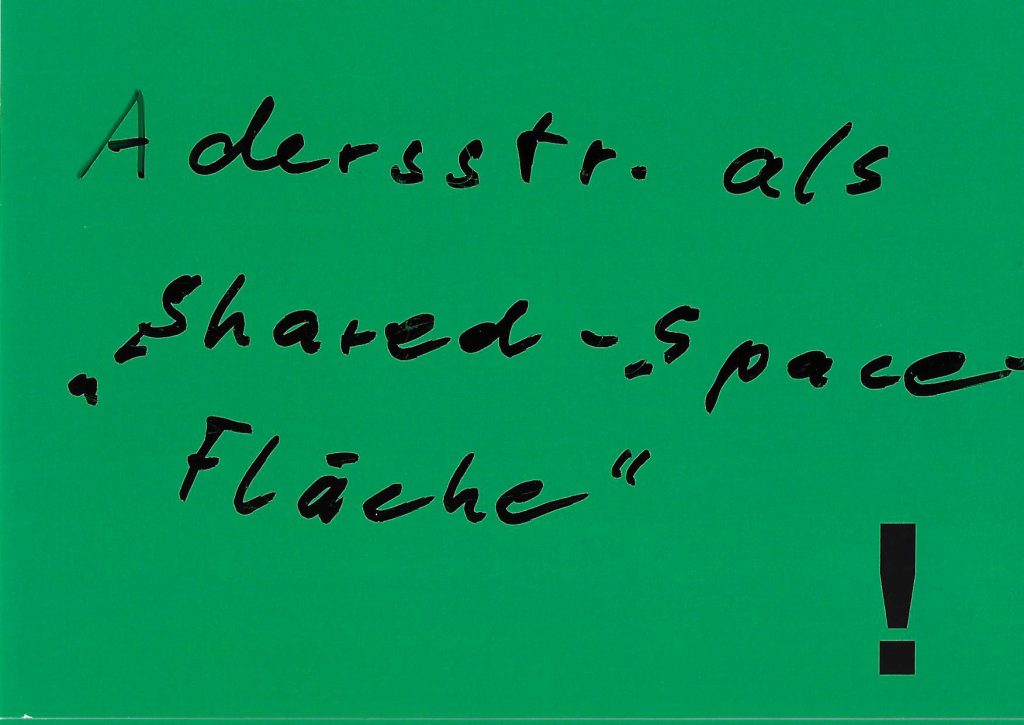 Adersstr. als
„Shared-Space-
Fläche“
!